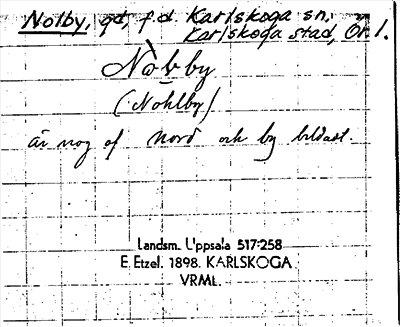 Nolby, gd, f.d. Karlskoga sn,
Karlskoga stad, Ör l.
Nòlby
(Nohlby)
är nog af nord och by bildat.
Landsm. Uppsala 517:258
E. Etzel. 1898. KARLSKOGA
VRML.